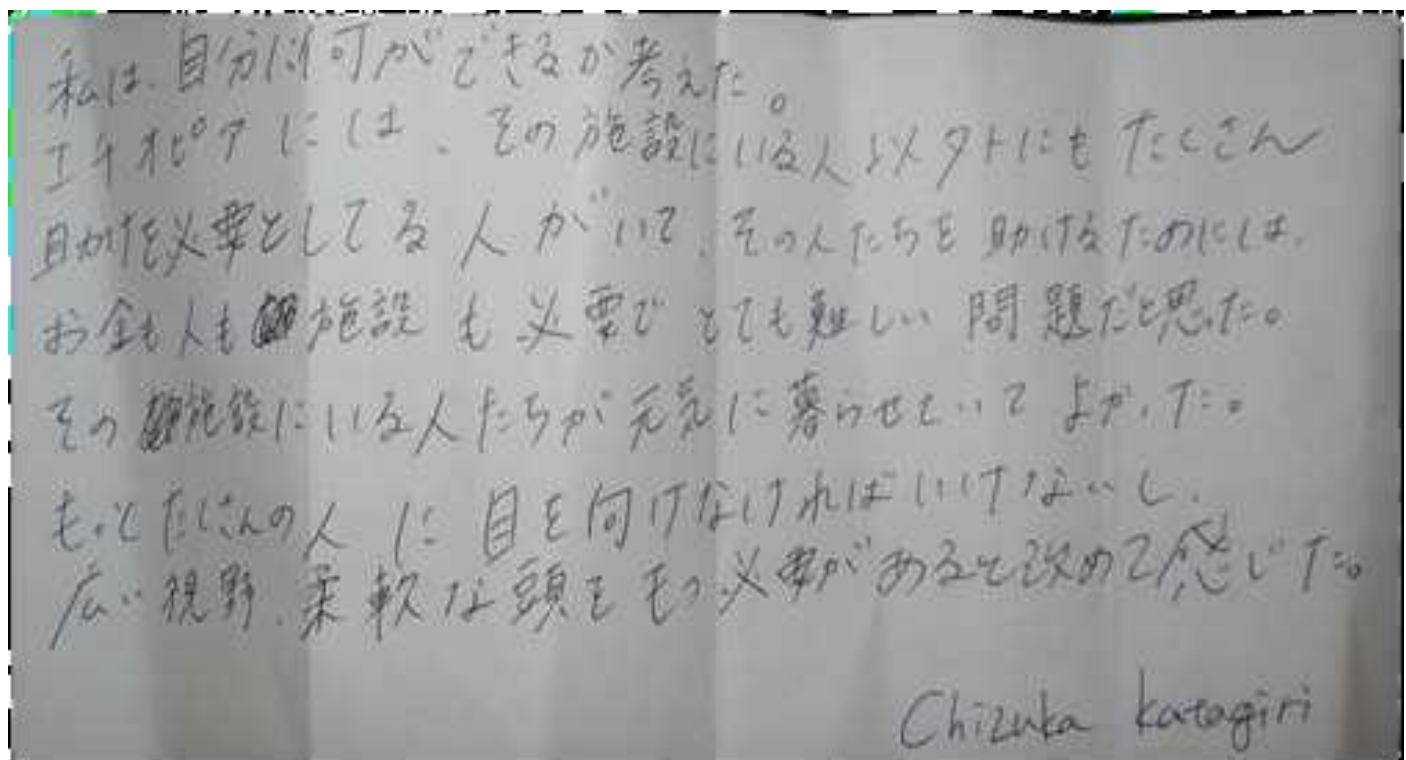 私は、自分に何ができるか考えた。
エチオピアには、その施設にいる人以外にもたくさん
助けを必要としてる人がいて、その人たちを助けるためには、
お金も人も施設も必要でとても難しい問題だと思った。
その施設にいる人たちが元気に暮らせていてよかった。
もっとたくさんの人に目を向けなければいけないし、
広い視野、柔軟な頭をもつ必要があると改めて感じた。
Chizuka katagiri